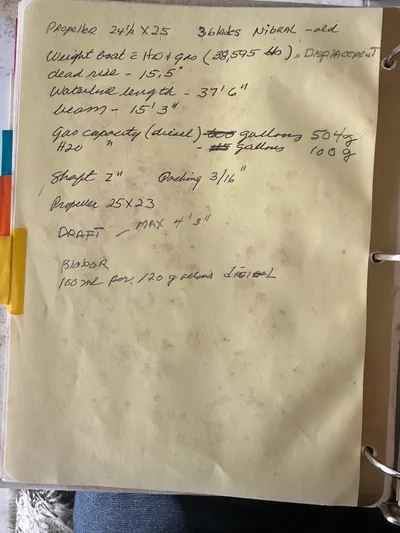 Propeller 24½ X 25 3 blades NIBRAL - old
Weight boat = H20 + gas (38,595 lb) = DISPLACEMENT
dead rise - 15,5°
Waterline length - 37' 6"
beam - 15' 3"
Gas capacity (diesel) gallons 504g
H20 " - gallons 100g
Shaft 2" Packing 3/16"
Propeller 25 X 23
DRAFT - MAX 4' 3"
BioBOR
100 ml per 120 gallons DIESEL